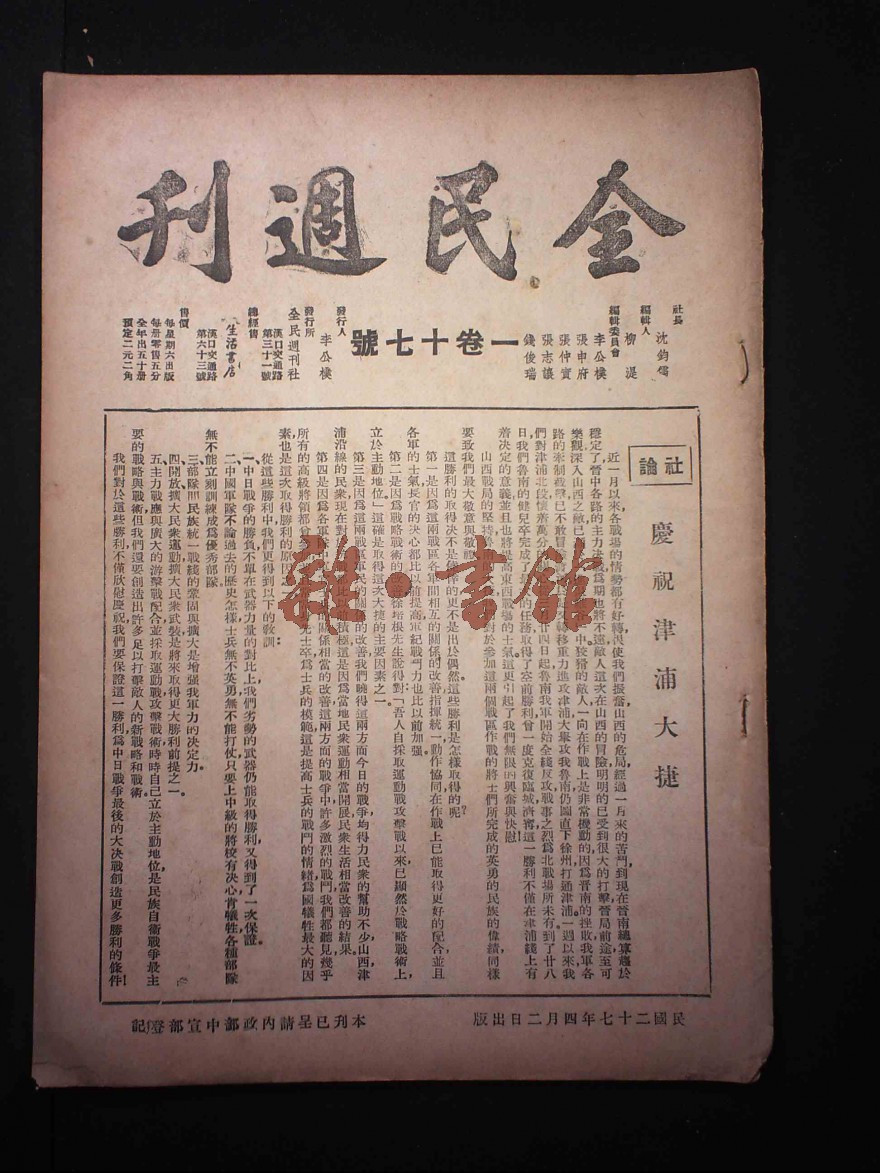 全民週刊
一卷十七號
社長
沈鈞儒
編輯人
柳湜
編輯委員會
李公樸
張申府
張仲實
張志讓
錢俊瑞
發行人
李公樸
發行所
全民週刊社
漢口交通路
第三十一號
總經售
生活書店
漢口交通路
第六十三號
售價
每星期六出版
每冊零售五分
全年出五十冊
預定二元二角
社論
慶祝津浦大捷
近一月以來,各戰場的情勢都有好轉,很使我們振奮,山西的危局,經過一月來的苦鬥,到現在晉南總算趨於
穩定了,晉中各路的主力決
為期也將不遠,敵人這次在山西的冒險,明明的已受到很大的打擊,晉局前途至可
樂觀,深入山西之敵已
中,狡猾的敵人,一向在作戰上是非常機動的,因為晉南的挫敗,我軍各
路的牽制截擊,已不敢冒
移重力進攻津浦,大舉攻我魯南,仍圖直下徐州,打通津浦。一週以來,我
們對津浦北段懷着萬分
廿四日起,魯南我軍開始全綫反攻,戰事之烈為北戰場所未有,到了廿八
日,我們魯南的健兒卒完成了
的任務,取得了空前勝利,曾一度克復臨城濟寧,這一勝利不僅在津浦綫上有
着決定的意義,並且也將提高東西戰場的士氣,這更引起了我們無限的興奮與快慰!
山西戰局的堅持,
對於參加這兩個戰區作戰的將士們所完成的英勇的民族的偉績,同樣
要致我們最大敬意與敬禮
這勝利的取得,決不是僥倖的,更不是出於偶然,這些勝利是怎樣取得的呢?
第一,是因為這兩戰區各軍間相互的關係的改善,指揮統一,動作協同,在作戰上已能取得更好的配合,並且
各軍的士氣,長官的決心都比以前提高,軍紀戰鬥力也比以前加強。
第二,是因為戰略戰術的改善,徐培根先生說得對:「吾人自採取運動戰攻擊戰以來,已顯然於戰略戰術上
立於主動地位」這確是取得這次大捷的主要因素之一。
第三,是因為這兩戰區軍民的關係的改善,我們曉得這兩方面今日的戰爭均得力民衆的幫助不少,山西津
浦沿線的民衆現在對
比以前積極,這是因為當地民衆運動相當開展,民衆生活相當改善的結果。
第四,是因為各軍
的關係相當的改善,這兩方面的戰爭中,許多激烈的戰鬥,我們都聽見幾乎
所有的高級將領都
士卒,為士兵的模範,這是提高士兵的戰鬥的情緒,為國犧牲最大的因
素,也是這次取得勝利的原因之一。
從這些勝利中,我們更得到以下的教訓:
一、中日戰爭的勝負,不單在武器力量的對比上,我們劣勢的武器仍能取得勝利,又得到了一次保證。
二、中國軍隊不論過去的歷史怎樣,士兵無不英勇,無不能打仗,只要上中級的將校有決心,肯犧牲,各種部隊
無不能立刻訓練成為優秀部隊。
三、部隊間民族統一戰綫的鞏固與擴大,是增強我軍力的決定力。
四、開放擴大民衆運動,擴大民衆武裝,是將來取得更大勝利前提之一。
五、主力戰應與廣大的游擊戰配合,並採取運動戰攻擊戰術,時時自己立於主動地位,是民族自衛戰爭最主
要的戰略與戰術,但我們還要創造出許多足以打擊敵人的新戰略和戰術。
我們對於這些勝利,不僅欣慰慶祝,我們要保證這一勝利,為中日戰爭最後的大決戰創造更多勝利的條件!
民國二十七年四月二日出版
本刊已呈請內政部中宣部登記
雜·書館